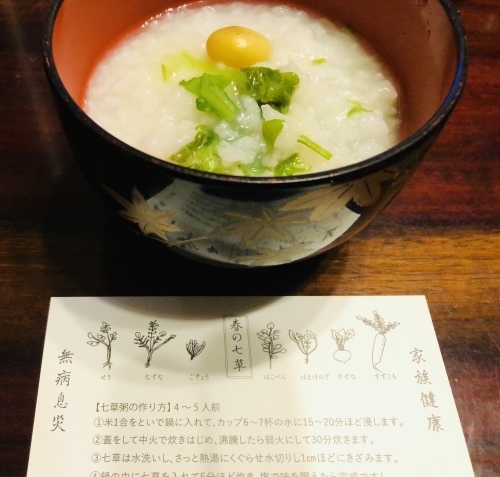 春の七草
無病息災
家族健康
せり
なずな
ごぎょう
はこべら
ほとけのざ
すずな
すずしろ
【七草粥の作り方】4～5人前
①米1合をといで鍋に入れて、カップ6～7杯の水に15～20分ほど浸します。
②蓋をして中火で炊きはじめ、沸騰したら弱火にして30分炊きます。
③七草は水洗いし、さっと熱湯にくぐらせ水切りし1cmほどにきざみます。
④鍋の中に七草を入れて5分ほど炊き、塩で味を調えたら完成です!